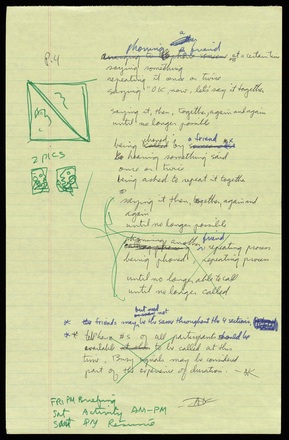 P. 4
phoning a friend
at a certain time
saying something
repeating it once or twice
saying "OK now, let's say it together
saying it, then, together, again and again
until no longer possible
being phoned by a friend
hearing something said
once or twice
being asked to repeat it together
saying it then, together, again and
again
until no longer possible
2 PICS
phoning another friend
repeating process
being phoned repeating process
until no longer able to call
until no longer called
but need not
* the friends may be the same throughout the 4 sections
** #s of all participants should be
available to be called at this
time. Busy signals may be considered
part of the experience of duration. - AK
FRI PM Briefing
Sat Activity AM-PM
Sun PM Resumé